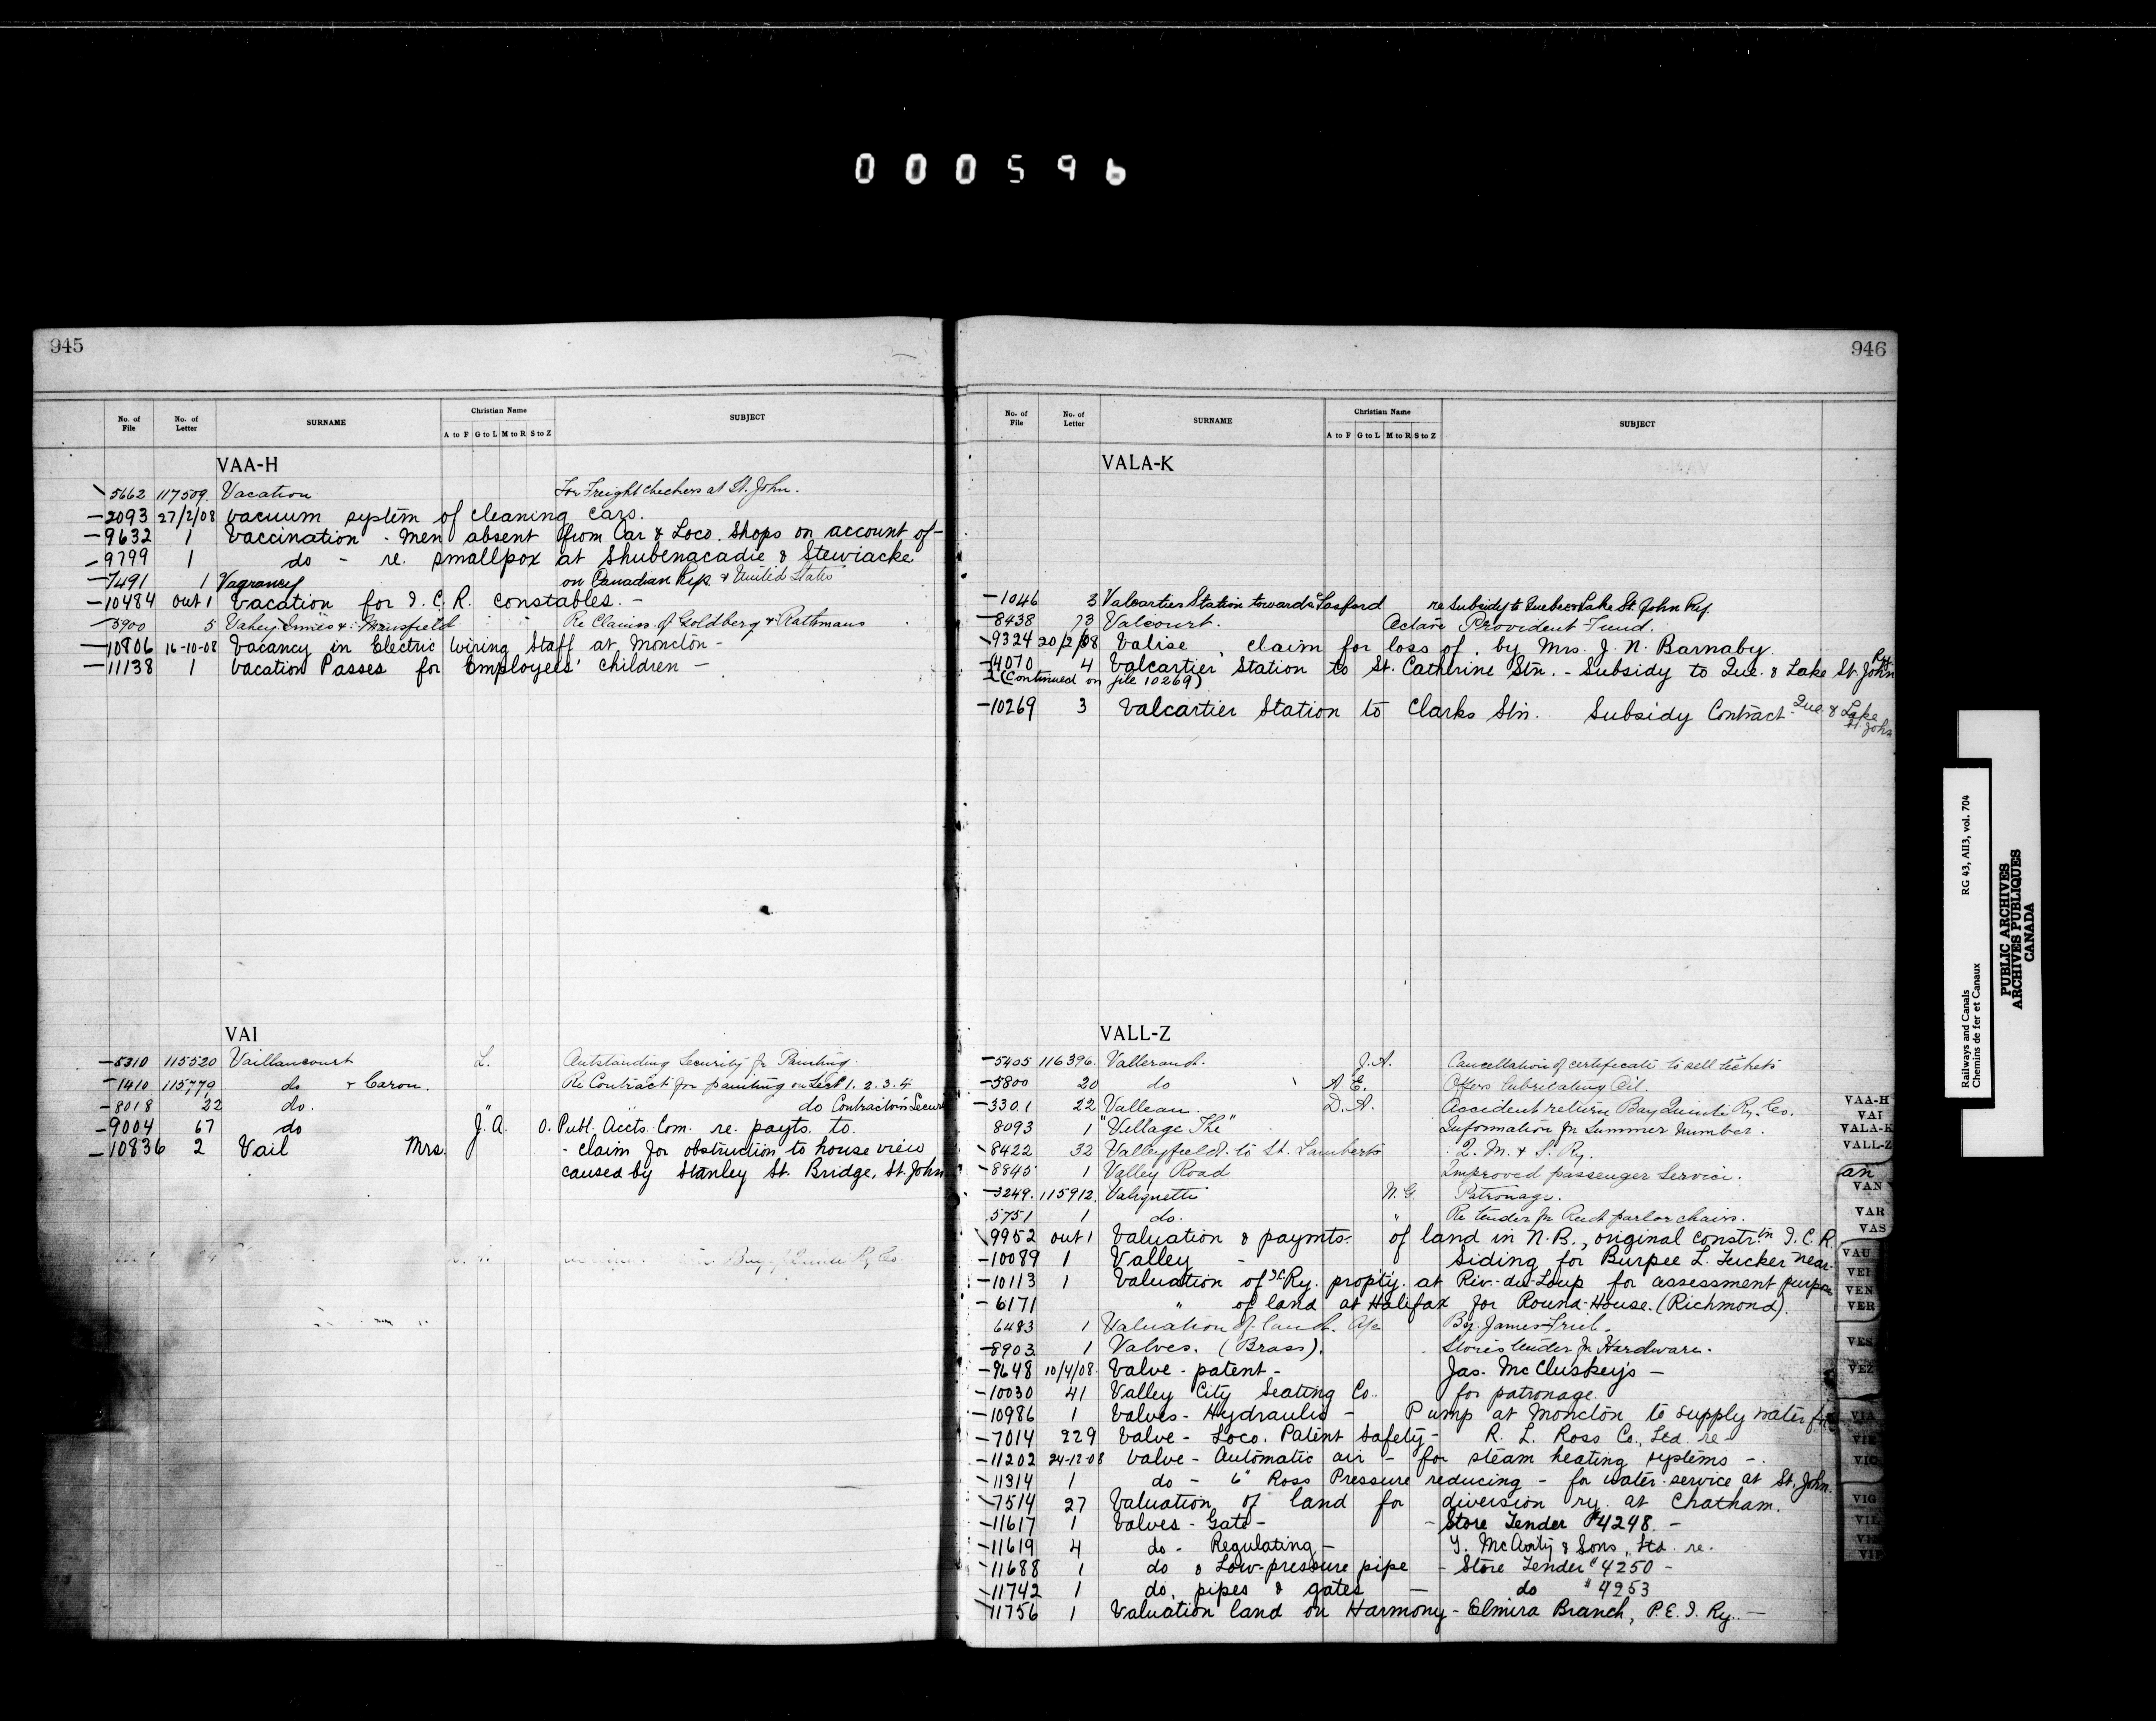 000596
945
No. of File No. of Letter SURNAME Christian Name SUBJECT
A to F G to L M to R S to Z
VAA-H
5662 117509. Vacation For Freight checkers at St. John.
2093 27/2/08 Vacuum system of cleaning cars.
9632 1 Vaccination - Men absent from Car & Loco. Shops on account of-
9799 1 do - re. smallpox at Shubenacadie & Stewiacke
7491 1 Vagrancy on Canadian Rys. & United States
10484 out 1 Vacation for I.C.R. constables. -
5900 5 Vahey Innes & Mansfield Re Claims of Goldberg & Rathmans
10806 16-10-08 Vacancy in Electric Wiring Staff at Moncton -
11138 1 Vacation Passes for Employees' children -
VAI
5310 115520 Vaillancourt L. Outstanding Security for Painting.
1410 115779 do & Caron. Re Contract for painting on Sect 1. 2. 3. 4
8018 22 do. " do Contractors Secur
9004 67 do J.A. O. Publ. Accts. Com. re. payts. to.
10836 2 Vail Mrs. - claim for obstruction to house view
caused by Stanley St. Bridge, St. John
946
No. of File No. of Letter SURNAME Christian Name SUBJECT
A to F G to L M to R S to Z
VALA-K
1046 3 Valcartier Station towards Gosford re Subsidy to Quebec & Lake St. John Ry.
8438 73 Valcourt. Octave Provident Fund.
9324 20/2/08 Valise, claim for loss of, by Mrs. J. N. Barnaby.
4070 4 Valcartier Station to St. Catherine Stn. - Subsidy to Que. & Lake St. John Ry.
(Continued on file 10269)
10269 3 Valcartier Station to Clarks Stn. Subsidy Contract - Que. & Lake St. John
VALL-Z
5405 116396. Vallerand. J.A. Cancellation of certificate to sell tickets
5800 20 do A E. Offers Lubricating Oil.
3301 22 Valleau. D.A. Accident return Bay Quinte Ry. Co.
8093 1 "Village The" Information for Summer Number.
8422 32 Valleyfield to St. Lamberts Q. M. & S. Ry.
8845 1 Valley Road Improved passenger Service.
3249. 115912. Valiquette N.G. Patronage.
5751 1 do. " Re tender for Reed parlor chairs.
9952 out 1 Valuation & paymts. of land in N.B., original constr.tn I.C.R.
10089 1 Valley - Siding for Burpee L. Tucker near-
10113 1 Valuation of I.C. Ry. prop'ty. at Riv.-du-Loup for assessment purpose
6171 " of land at Halifax for Round-House. (Richmond).
6483 1 Valuation of land. A/c By. James
8903 1 Valves. (Brass). Stores tender for Hardware.
9648 10/4/08. Valve - patent - Jas. McCluskey's -
10030 41 Valley City Seating Co. for patronage.
10986 1 Valves - Hydraulic - Pump at Moncton to supply water for
7014 229 Valve - Loco. Patent Safety - R. L. Ross Co., Ltd. re -
11202 24-12-08 Valve - Automatic air - for steam heating systems -
11314 1 do - 6" Ross Pressure reducing - for water-service at St. John.
7514 27 Valuation of land for diversion ry. at Chatham.
11617 1 Valves - Gate - - Store Tender #4248. -
11619 4 do - Regulating - T. McAvity & Sons, Ltd. re.
11688 1 do & Low-pressure pipe - Store Tender # 4250 -
11742 1 do, pipes & gates - do # 4253
11756 1 Valuation land on Harmony - Elmira Branch, P.E.I. Ry. -
VAA-H
VAI
VALA-K
VALL-Z
an
VAN
VAR
VAS
VAU
VEI
VEN
VER
VES
VEZ
VIA
VIE
VIC
VIG
VIL
Railways and Canals RG 43, AII3, vol. 704
Chemins de fer et Canaux
PUBLIC ARCHIVES
ARCHIVES PUBLIQUES
CANADA